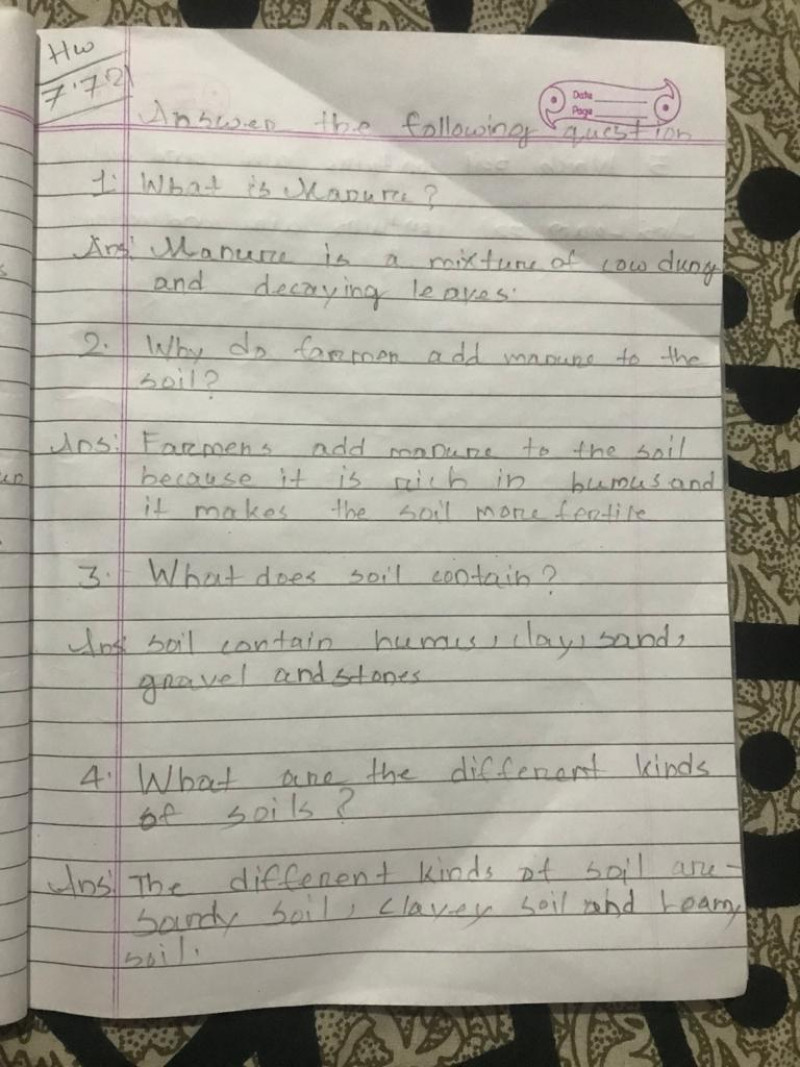 HW
7.7.21
Date
Page
Answer the following question
1. What is Manure?
Ans: Manure is a mixture of cow dung
and decaying leaves.
2. Why do farmer add manure to the
soil?
Ans: Farmers add manure to the soil
because it is rich in humus and
it makes the soil more fertile
3. What does soil contain?
Ans: soil contain humus, clay, sand,
gravel and stones
4. What are the different kinds
of soils?
Ans: The different kinds of soil are-
sandy soil, clayey soil and Loamy
soil.